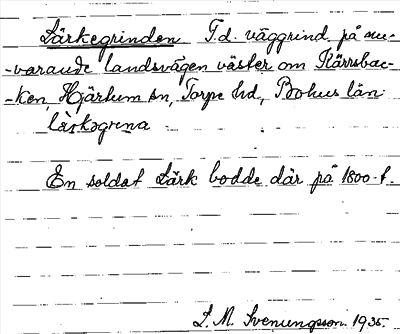 Lärkegrinden F.d. väggrind på nu-
-varande landsvägen väster om Kärrsbac-
-ken, Hjärtum sn, Torpe hd, Bohus län
lärkegrena
En soldat Lärk bodde där på 1800-t.
L. M. Svenungsson 1935.